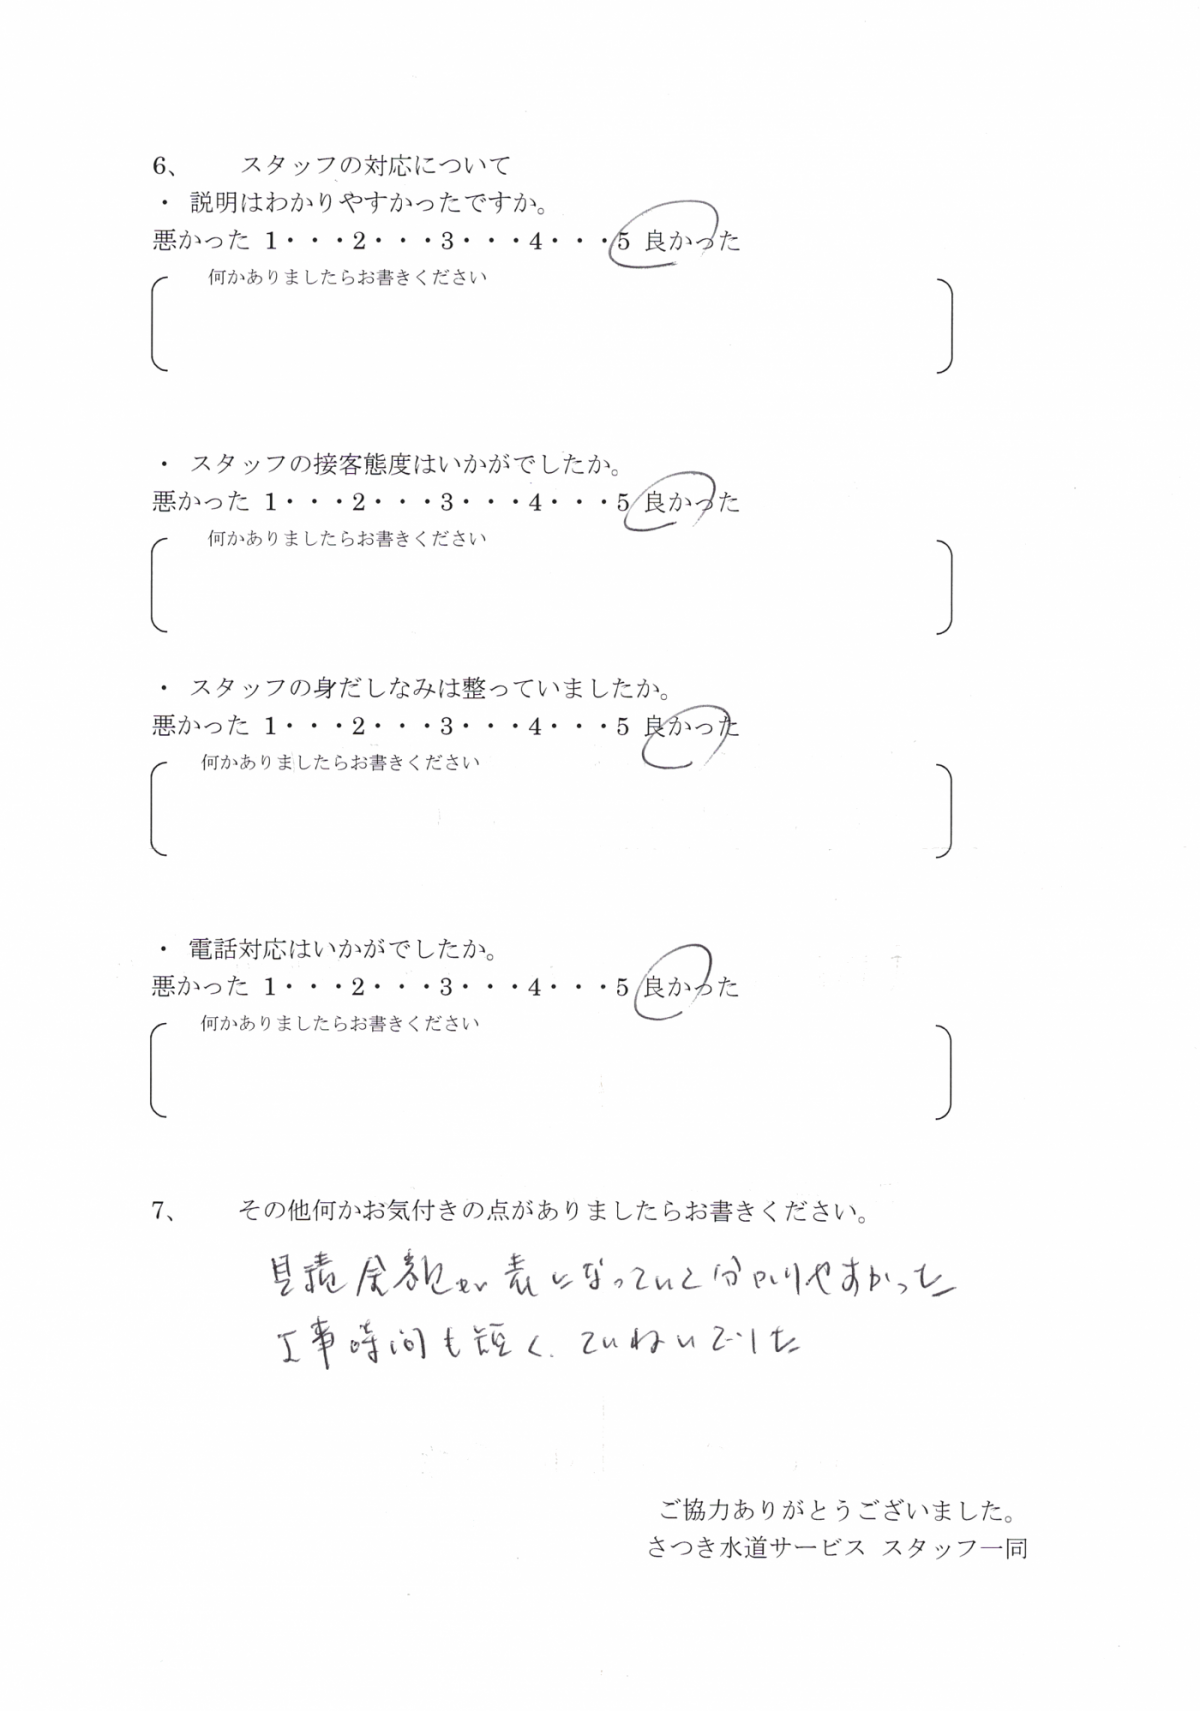 6、 スタッフの対応について
・ 説明はわかりやすかったですか。
悪かった 1・・・2・・・3・・・4・・・5 良かった
何かありましたらお書きください
・ スタッフの接客態度はいかがでしたか。
悪かった 1・・・2・・・3・・・4・・・5 良かった
何かありましたらお書きください
・ スタッフの身だしなみは整っていましたか。
悪かった 1・・・2・・・3・・・4・・・5 良かった
何かありましたらお書きください
・ 電話対応はいかがでしたか。
悪かった 1・・・2・・・3・・・4・・・5 良かった
何かありましたらお書きください
7、 その他何かお気付きの点がありましたらお書きください。
見積金額が表になっていて分かりやすかった
工事時間も短く、ていねいでした
ご協力ありがとうございました。
さつき水道サービス スタッフ一同